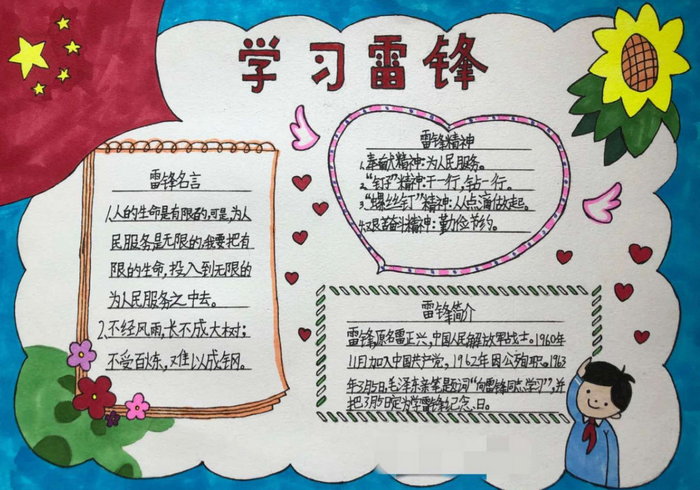 学习雷锋
雷锋名言
1.人的生命是有限的,可是,为人
民服务是无限的,我要把有
限的生命,投入到无限的
为人民服务之中去。
2.不经风雨,长不成大树;
不受百炼,难以成钢。
雷锋精神
1.奉献精神:为人民服务。
2.“钉子”精神:干一行,钻一行。
3.“螺丝钉”精神:从点滴做起。
4.艰苦奋斗精神:勤俭节约。
雷锋简介
雷锋,原名雷正兴,中国人民解放军战士。1960年
11月加入中国共产党,1962年因公殉职。1963
年3月5日,毛泽东亲笔题词“向雷锋同志学习”,并
把3月5日定为学雷锋纪念日。